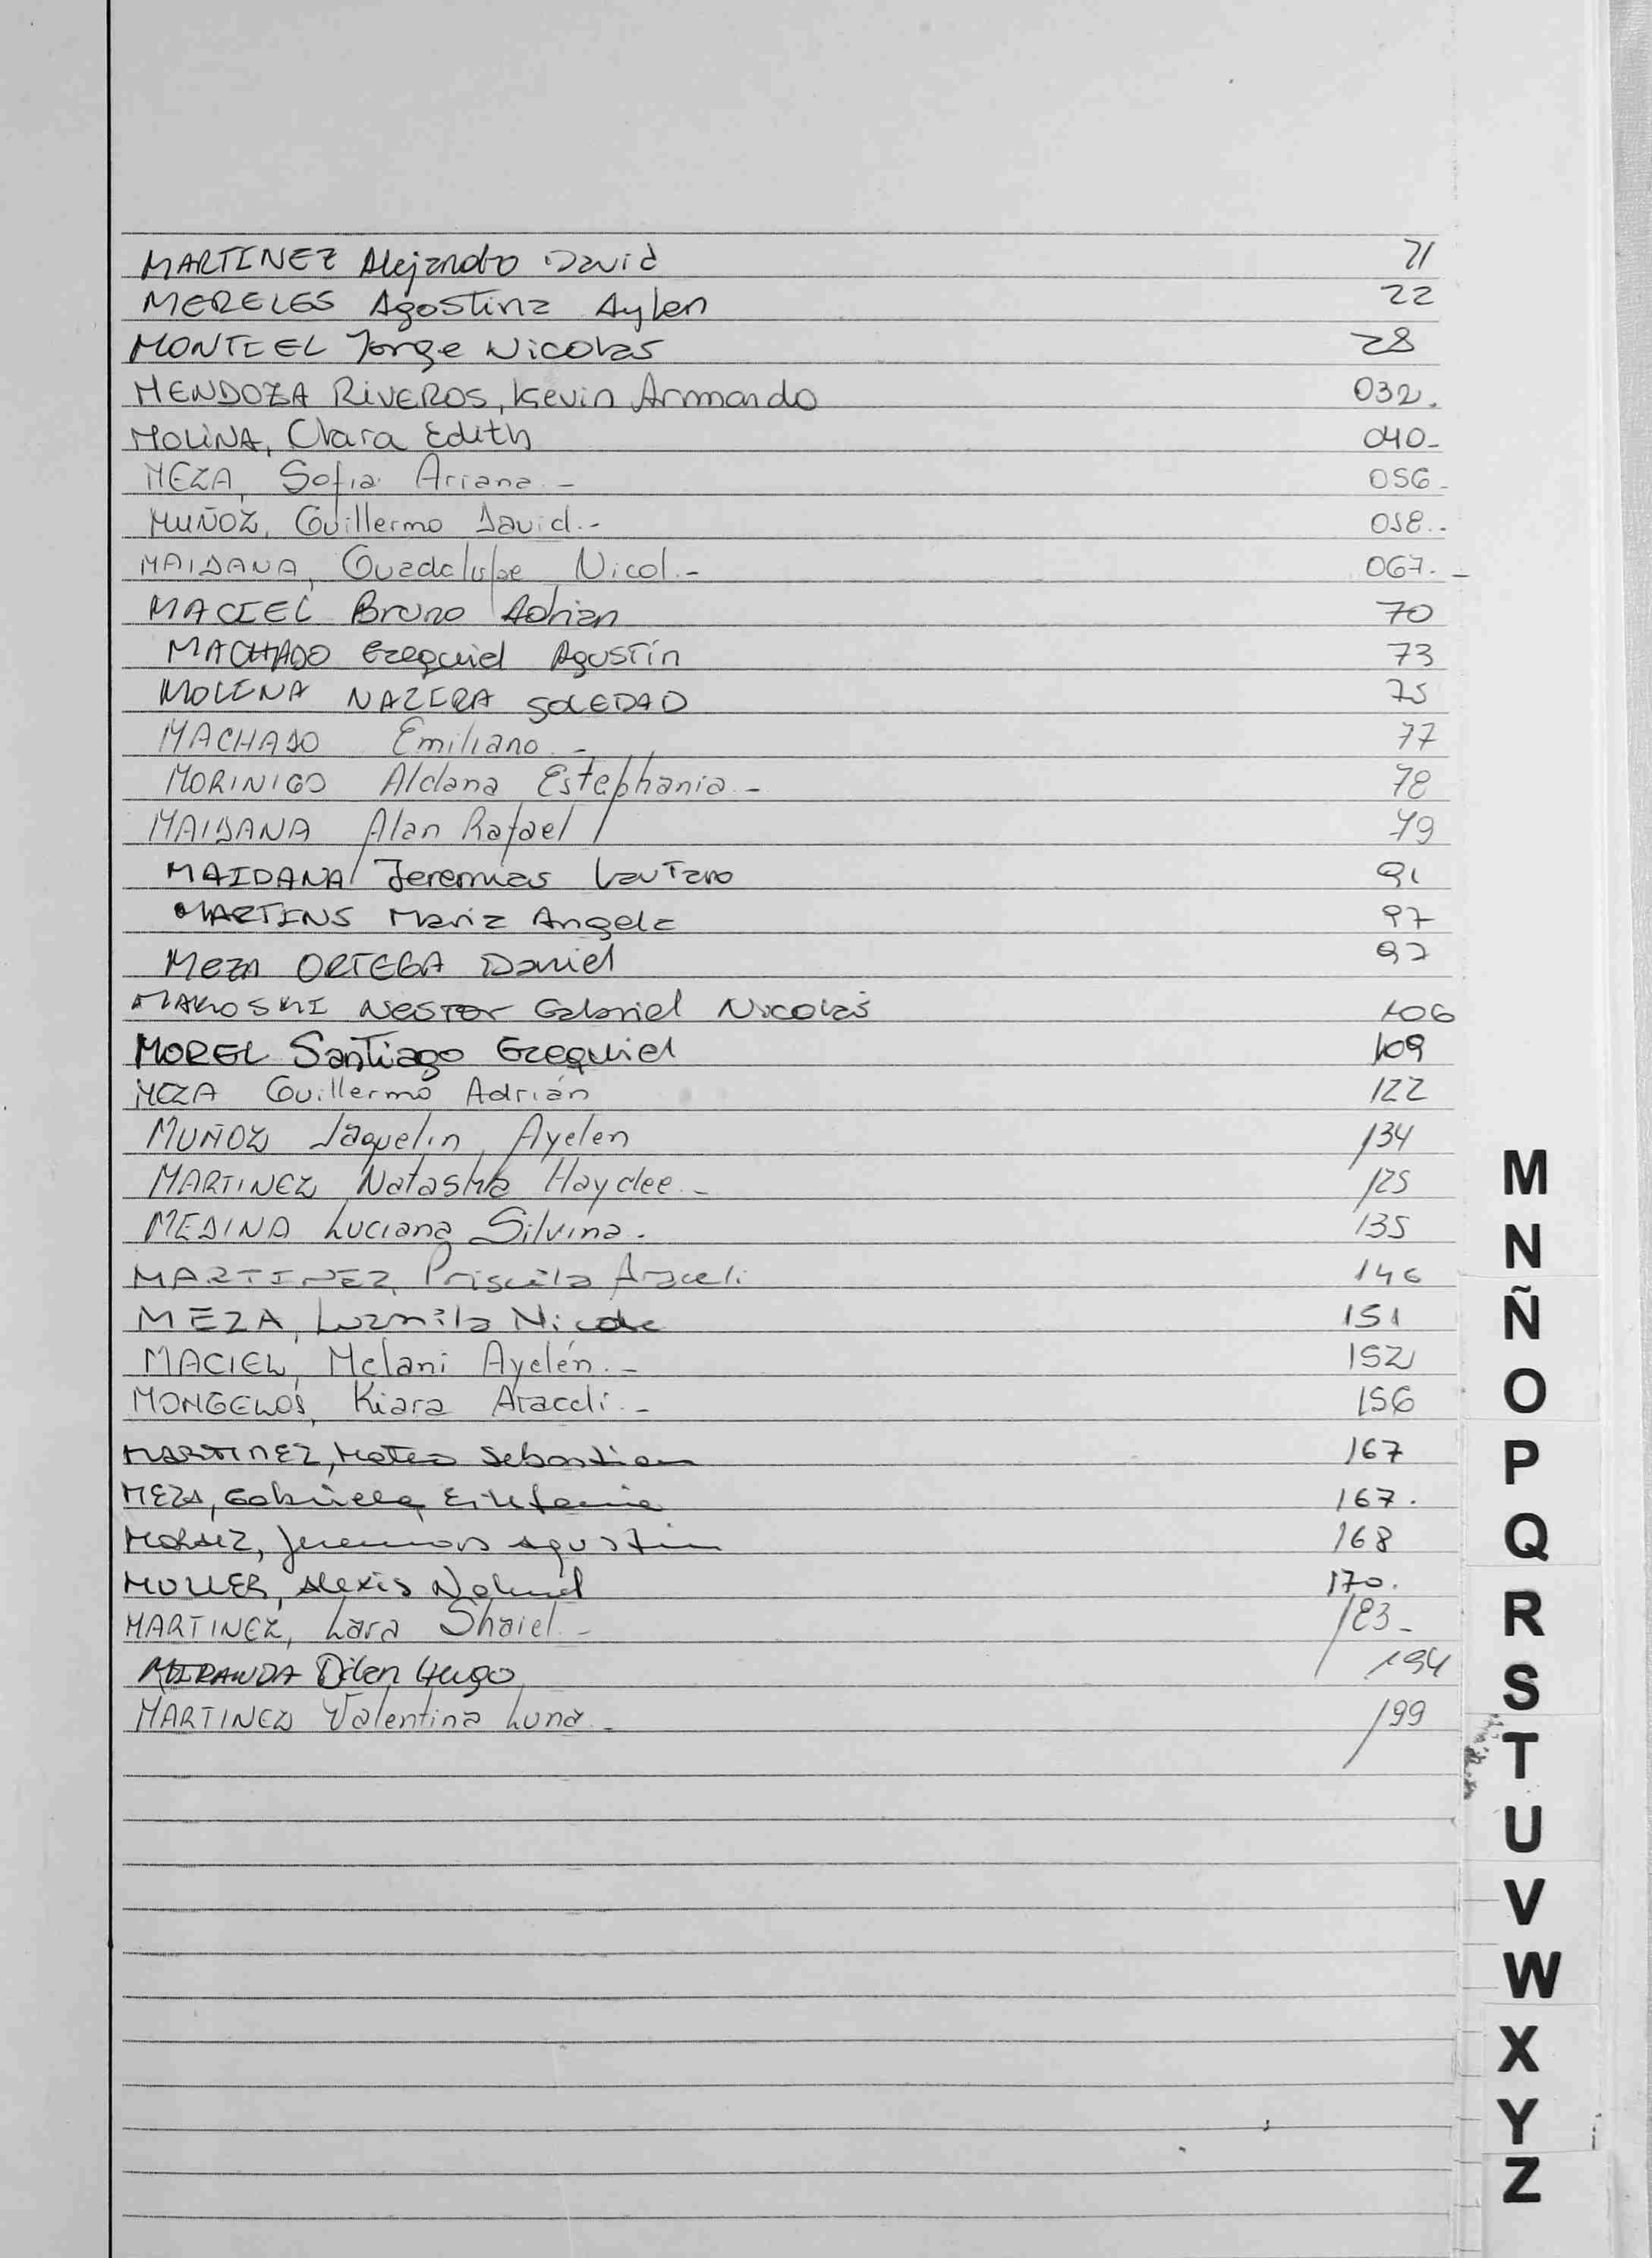 MARTINEZ Alejandro David 21
MERELES Agostina Aylen 22
MONTIEL Jorge Nicolas 28
MENDOZA RIVEROS, Kevin Armando 032.
MOLINA, Clara Edith 040-
MEZA, Sofia Ariana.- 056-
MUÑOZ, Guillermo David.- 058.-
MAIDANA, Guadalupe Nicol.- 067.-
MACIEL Bruno Adrian 70
MACHADO Ezequiel Agustín 73
MOLINA NAZIRA SOLEDAD 75
MACHADO Emiliano.- 77
MORINIGO Aldana Estephania.- 78
MAIDANA Alan Rafael 79
MAIDANA Jeremias Lautaro 91
MARTINS Maria Angela 97
MEZA ORTEGA Daniel 97
MAKOSKI Nestor Gabriel Nicolas 106
MOREL Santiago Ezequiel 109
MEZA Guillermo Adrián 122
MUÑOZ Jaquelin Ayelen 134
MARTINEZ Natasha Haydee.- 125
MEDINA Luciana Silvina. 135
MARTINEZ, Priscila Araceli 146
MEZA, Luzmila Nicole 151
MACIEL, Melani Ayelén.- 152
MONGELOS, Kiara Araceli.- 156
MARTINEZ, Mateo Sebastian 167
MEZA, Gabriela Estefania 167.
Jeremias Agustin 168
MULLER, Alexis Nahuel 170.
MARTINEZ, Lara Shaiel.- 183-
MIRANDA Dilan Hugo 194
MARTINEZ Valentina Luna.- 199
M
N
Ñ
O
P
Q
R
S
T
U
V
W
X
Y
Z